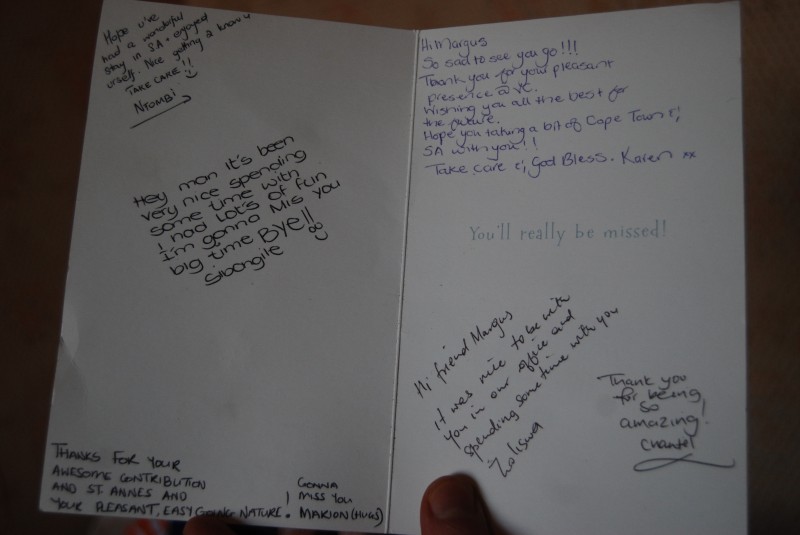 Hope u've
had a wonderful
stay in SA + enjoyed
urself. Nice getting 2 know u
TAKE CARE!!
NTOMBI
Hey man it's been
very nice spending
some time with
I had Lot's of fun
I'm gonna Mis you
big time BYE!!
Sibongile
THANKS FOR YOUR
AWESOME CONTRIBUTION
AND ST. ANNES AND
YOUR PLEASANT, EASY GOING NATURE.
GONNA
MISS YOU
MARION (HUGS)
Hi Margus
So sad to see you go!!!
Thank you for your pleasant
presence @ VC.
Wishing you all the best for
the future.
Hope you taking a bit of Cape Town &
SA with you!!
Take care & God Bless. Karen xx
You'll really be missed!
Hi friend Margus
It was nice to be with
you in our office and
spending some time with you
Zoliswa
Thank you
for being
so
amazing!
Chantel